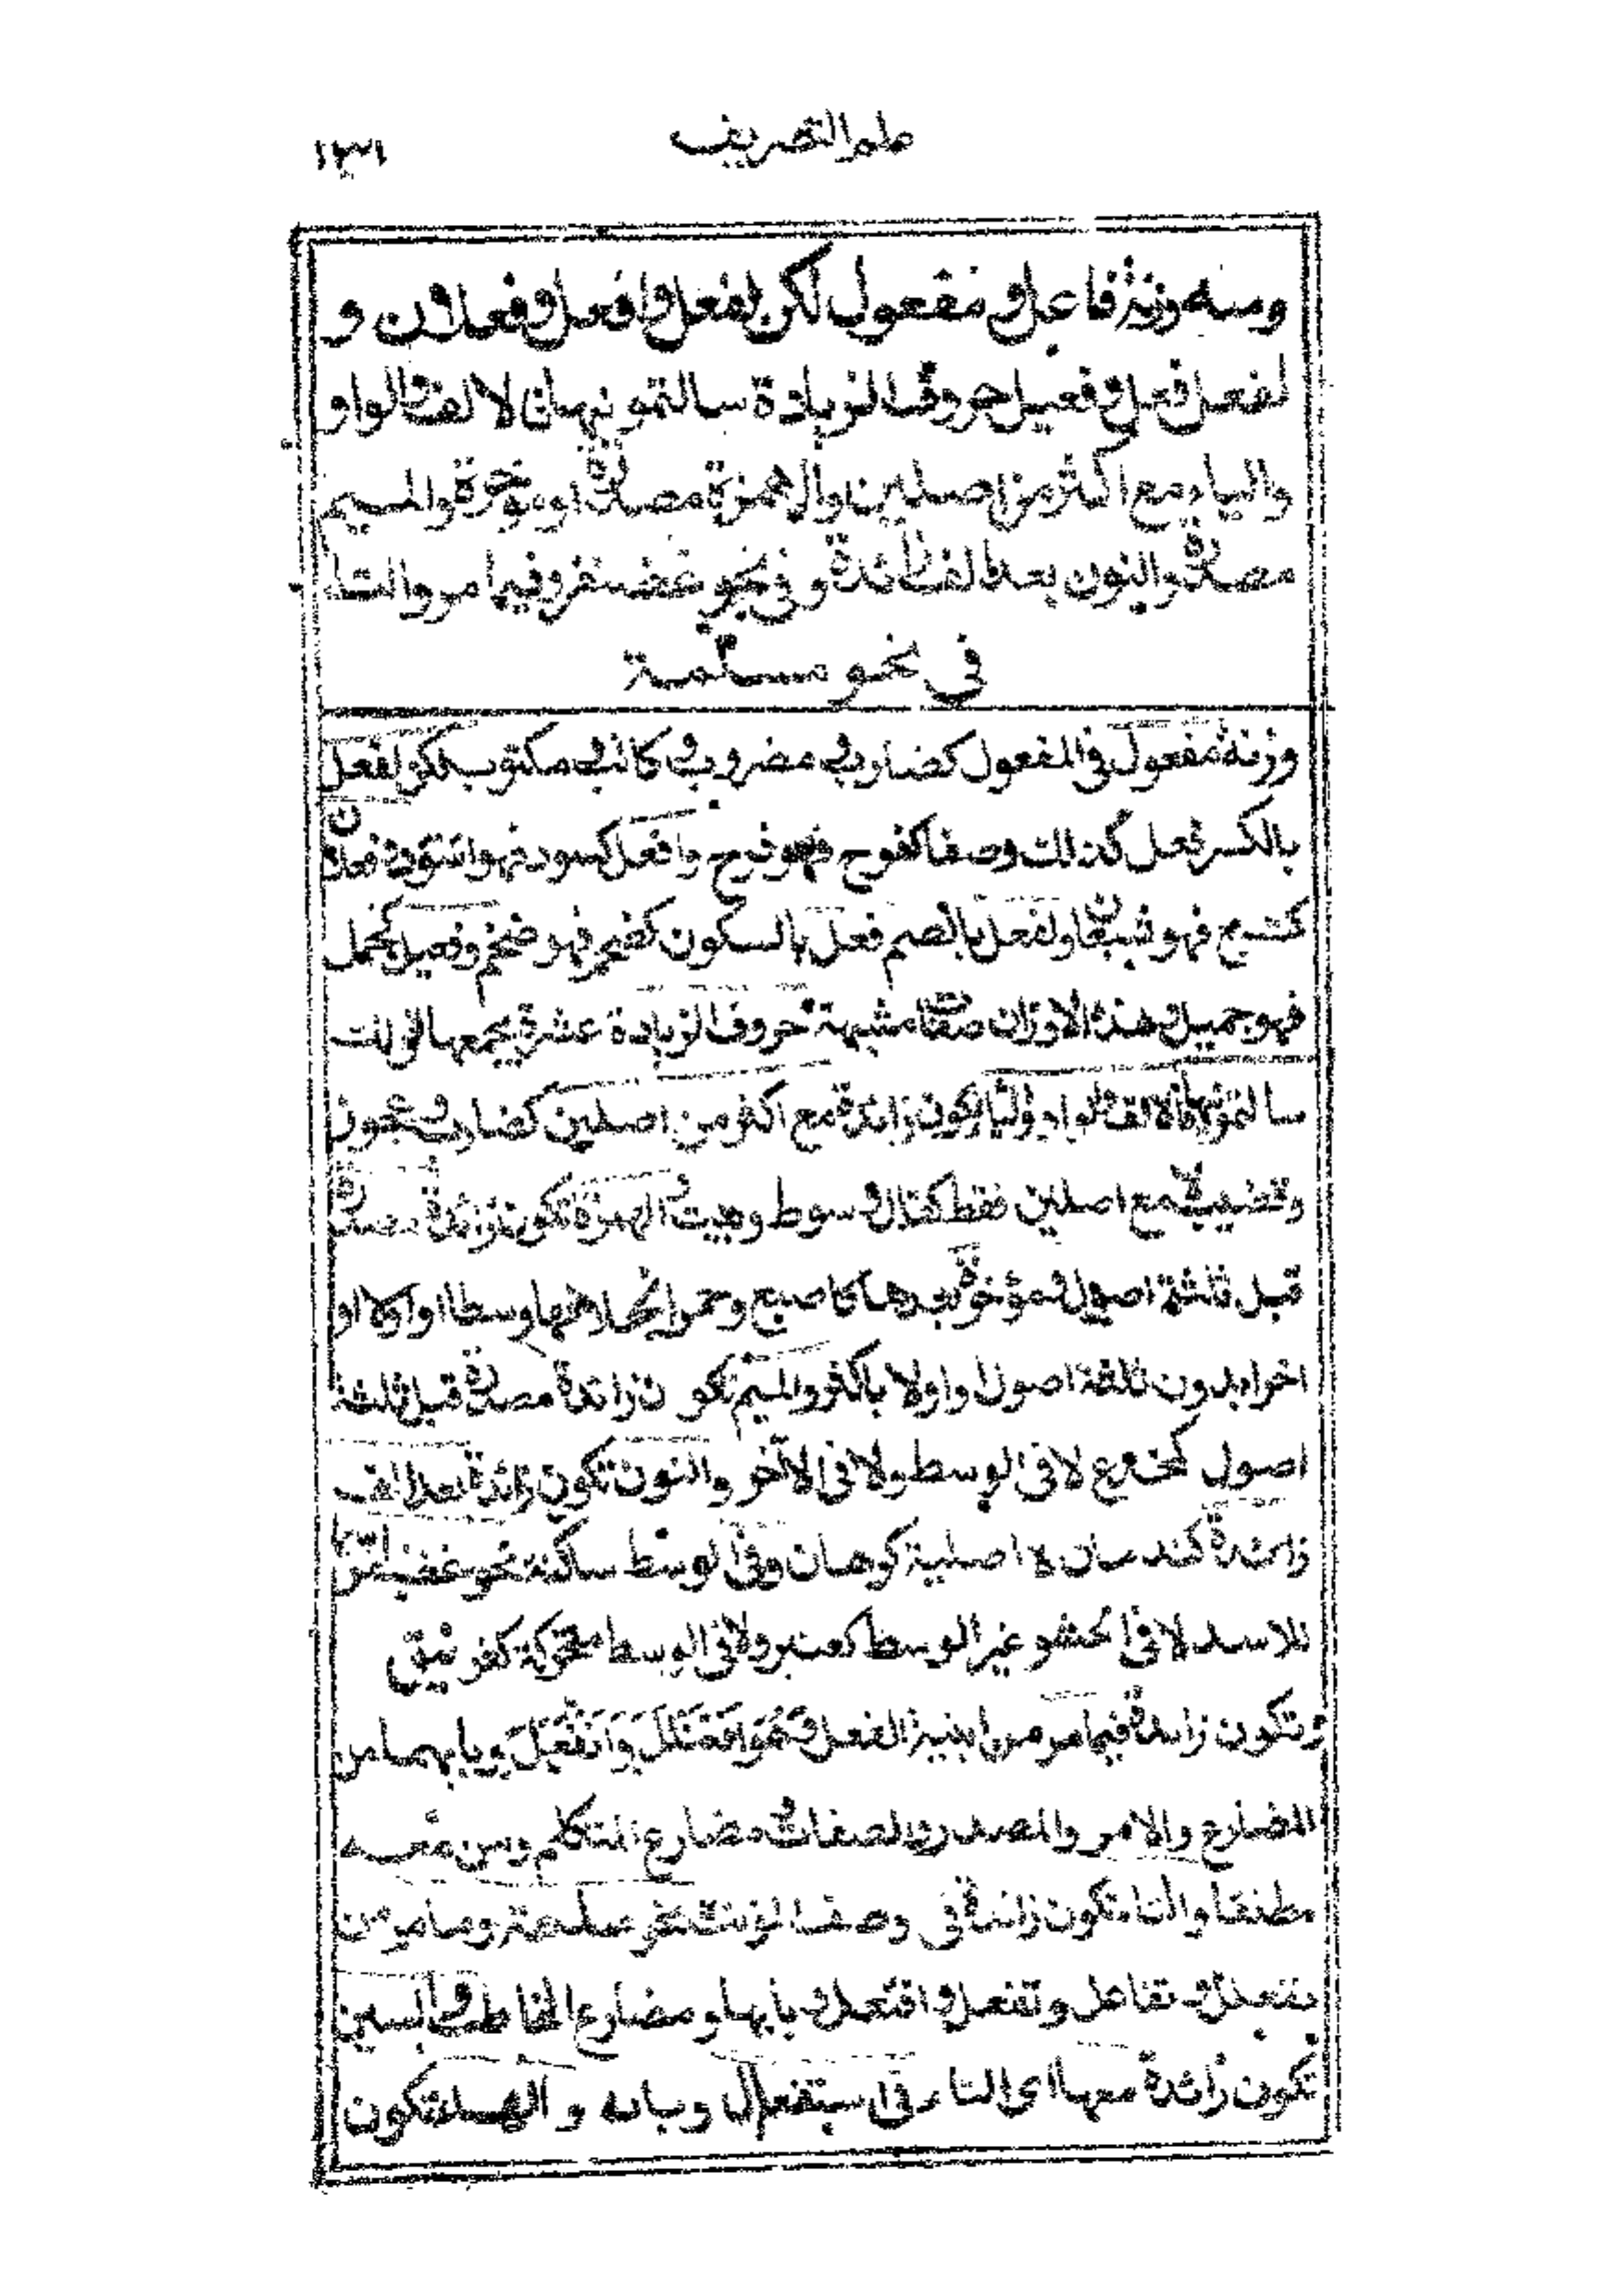 علم التصريف ١٣١
ومنه وزنة فاعل و مفعول لكن لفعل وافعل وفعلان و
لفعل فعل و فعيل حروف الزيادة سالتمونيها فالالف والواو
والياء مع اكثر من اصلين والهمزة مصدرة او مؤخرة والميم
مصدرة والنون بعد الف زائدة وفي نحو غضنفر وفيما مر والتاء
في نحو مسلمة
وزنة مفعول في المفعول كضارب و مضروب و كاتب و مكتوب لكن لفعل
بالكسر فعل كذلك وصفا كفرح فهو فرح وافعل كسود فهو اسود و فعلان
كشبع فهو شبعان ولفعل بالضم فعل بالسكون كضخم فهو ضخم وفعيل كجمل
فهو جميل و هذه الاوزان صفات مشبهة حروف الزيادة عشرة يجمعها قولك
سالتمونيها فالالف والواو والياء تكون زائدة مع اكثر من اصلين كضارب و عجوز
وقضيب لا مع اصلين فقط كقال و سوط وبيت و الهمزة تكون زائدة مصدرة
قبل ثلثة اصول و مؤخرة بعدها كاصبع وحمراء بخلافها وسطا او اولا او
اخرا بدون ثلثة اصول او اولا باكثر والميم تكون زائدة مصدرة قبل ثلثة
اصول كمخدع لا في الوسط ولا في الآخر والنون تكون زائدة بعد الف
زائدة كندمان لا اصلية كرهان وفي الوسط ساكنة نحو غضنفر
للاسد لا في الحشو غير الوسط كعنبر ولا في الوسط متحركة كغرنيق
وتكون زائدة فيما مر من ابنية الفعل وهو افعنلل وانفعل وبابهما من
المضارع والامر والمصدر والصفات و مضارع المتكلم ومن معه
مطلقا والتاء تكون زائدة في وصف المؤنث نحو مسلمة وما مر من
تفعلل و تفاعل وتفعل و افتعل و بابها و مضارع المخاطب و السين
تكون زائدة معها اي التاء في استفعال وبابه و الهاء تكون